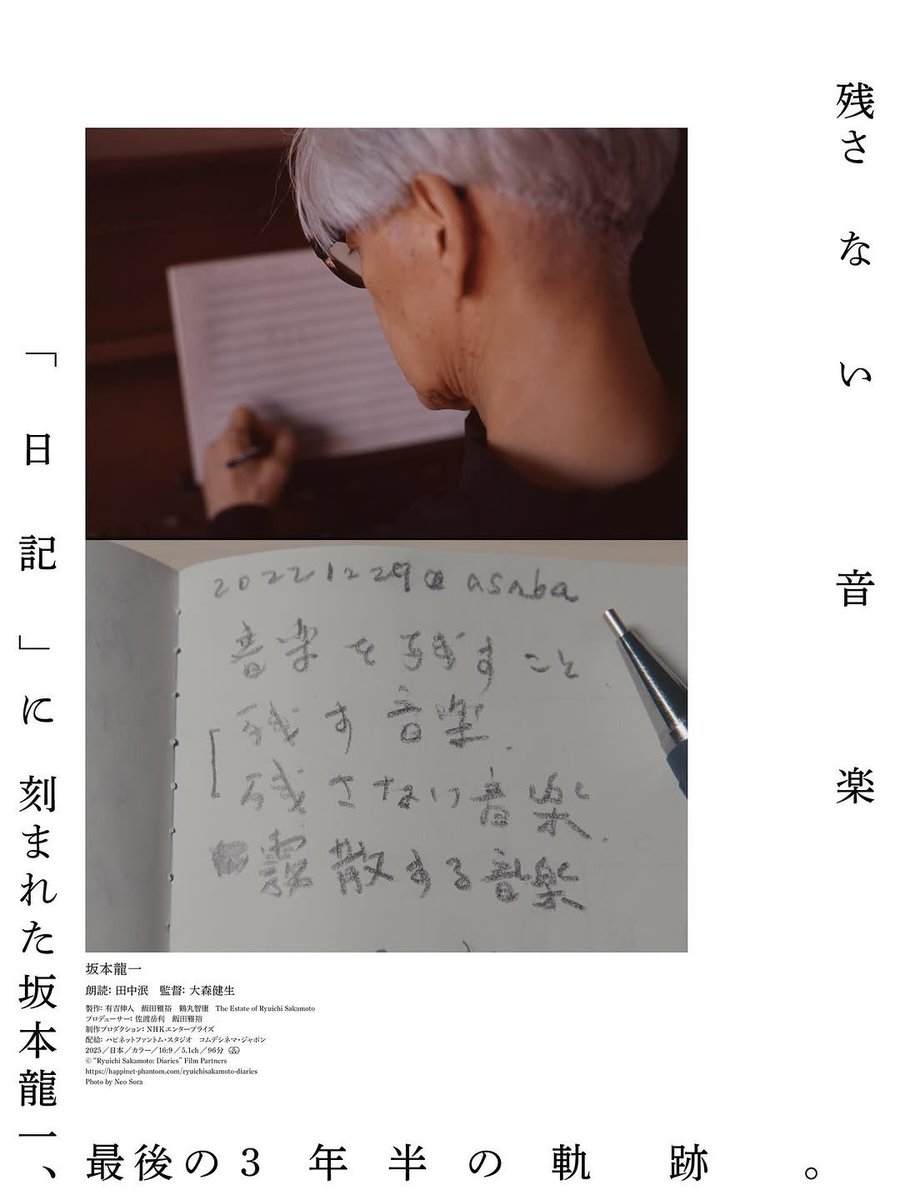 残さない音楽
「日記」に刻まれた坂本龍一、
最後の3年半の軌跡。
20221229 asaba
音楽を残すこと
残す音楽.
残さない音楽.
霧散する音楽
坂本龍一
朗読: 田中泯　監督: 大森健生
製作: 有吉伸人　飯田雅裕　鶴丸智康　The Estate of Ryuichi Sakamoto
プロデューサー: 佐渡岳利　飯田雅裕
制作プロダクション: NHKエンタープライズ
配給: ハピネットファントム・スタジオ　コムデシネマ・ジャポン
2025／日本／カラー／16:9／5.1ch／96分　G
© "Ryuichi Sakamoto: Diaries" Film Partners
https://happinet-phantom.com/ryuichisakamoto-diaries
Photo by Neo Sora